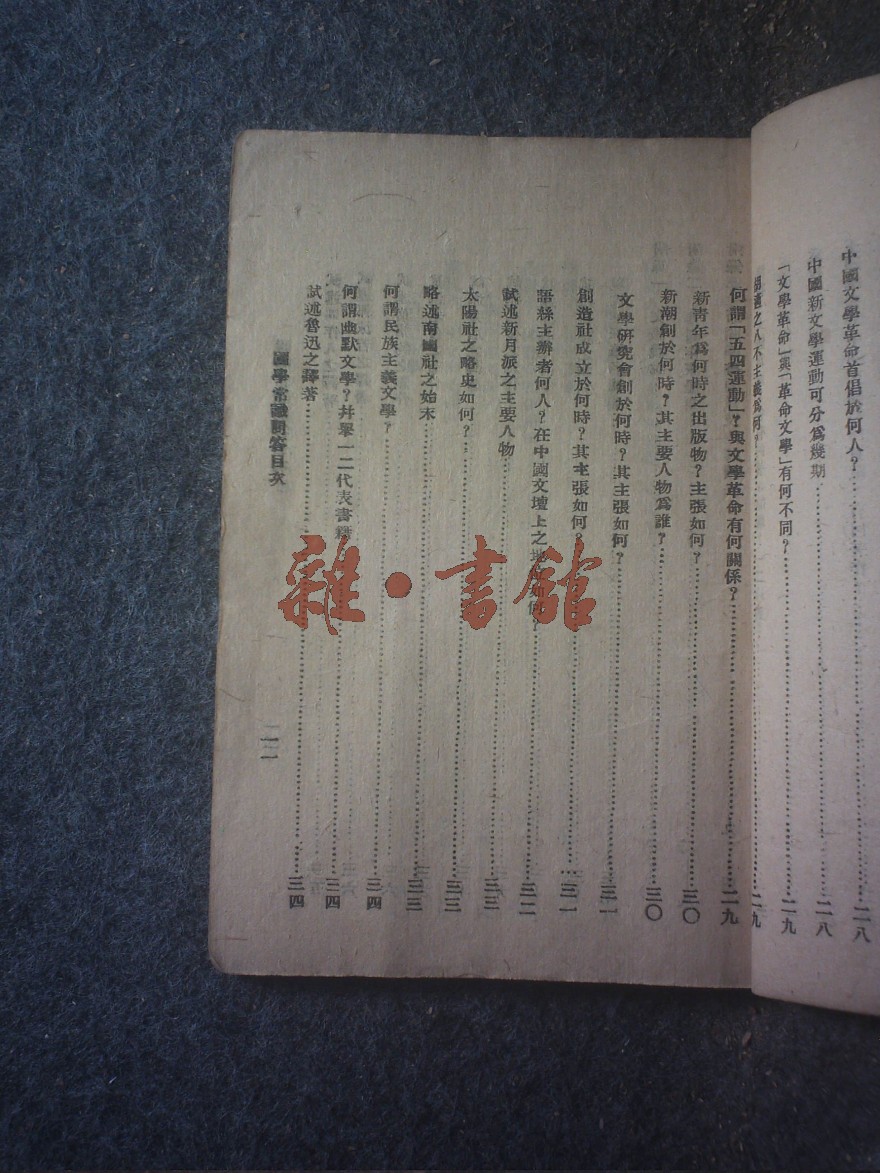 中國文學革命首倡於何人?……二八
中國新文學運動可分爲幾期……二八
「文學革命」與「革命文學」有何不同?……二九
適之八不主義爲何?……二九
何謂「五四運動」?與文學革命有何關係?……二九
新青年爲何時之出版物?主張如何?……三〇
新潮創於何時?其主要人物爲誰?……三〇
文學研究會創於何時?其主張如何?……三一
創造社成立於何時?其主張如何?……三一
語絲主辦者何人?在中國文壇上之地位如何?……三二
試述新月派之主要人物……
太陽社之略史如何?……三三
略述南國社之始末……三三
何謂民族主義文學?……三四
何謂幽默文學?幷舉一二代表書籍……三四
試述魯迅之譯著……三四
國學常識問答目次
雜·書館